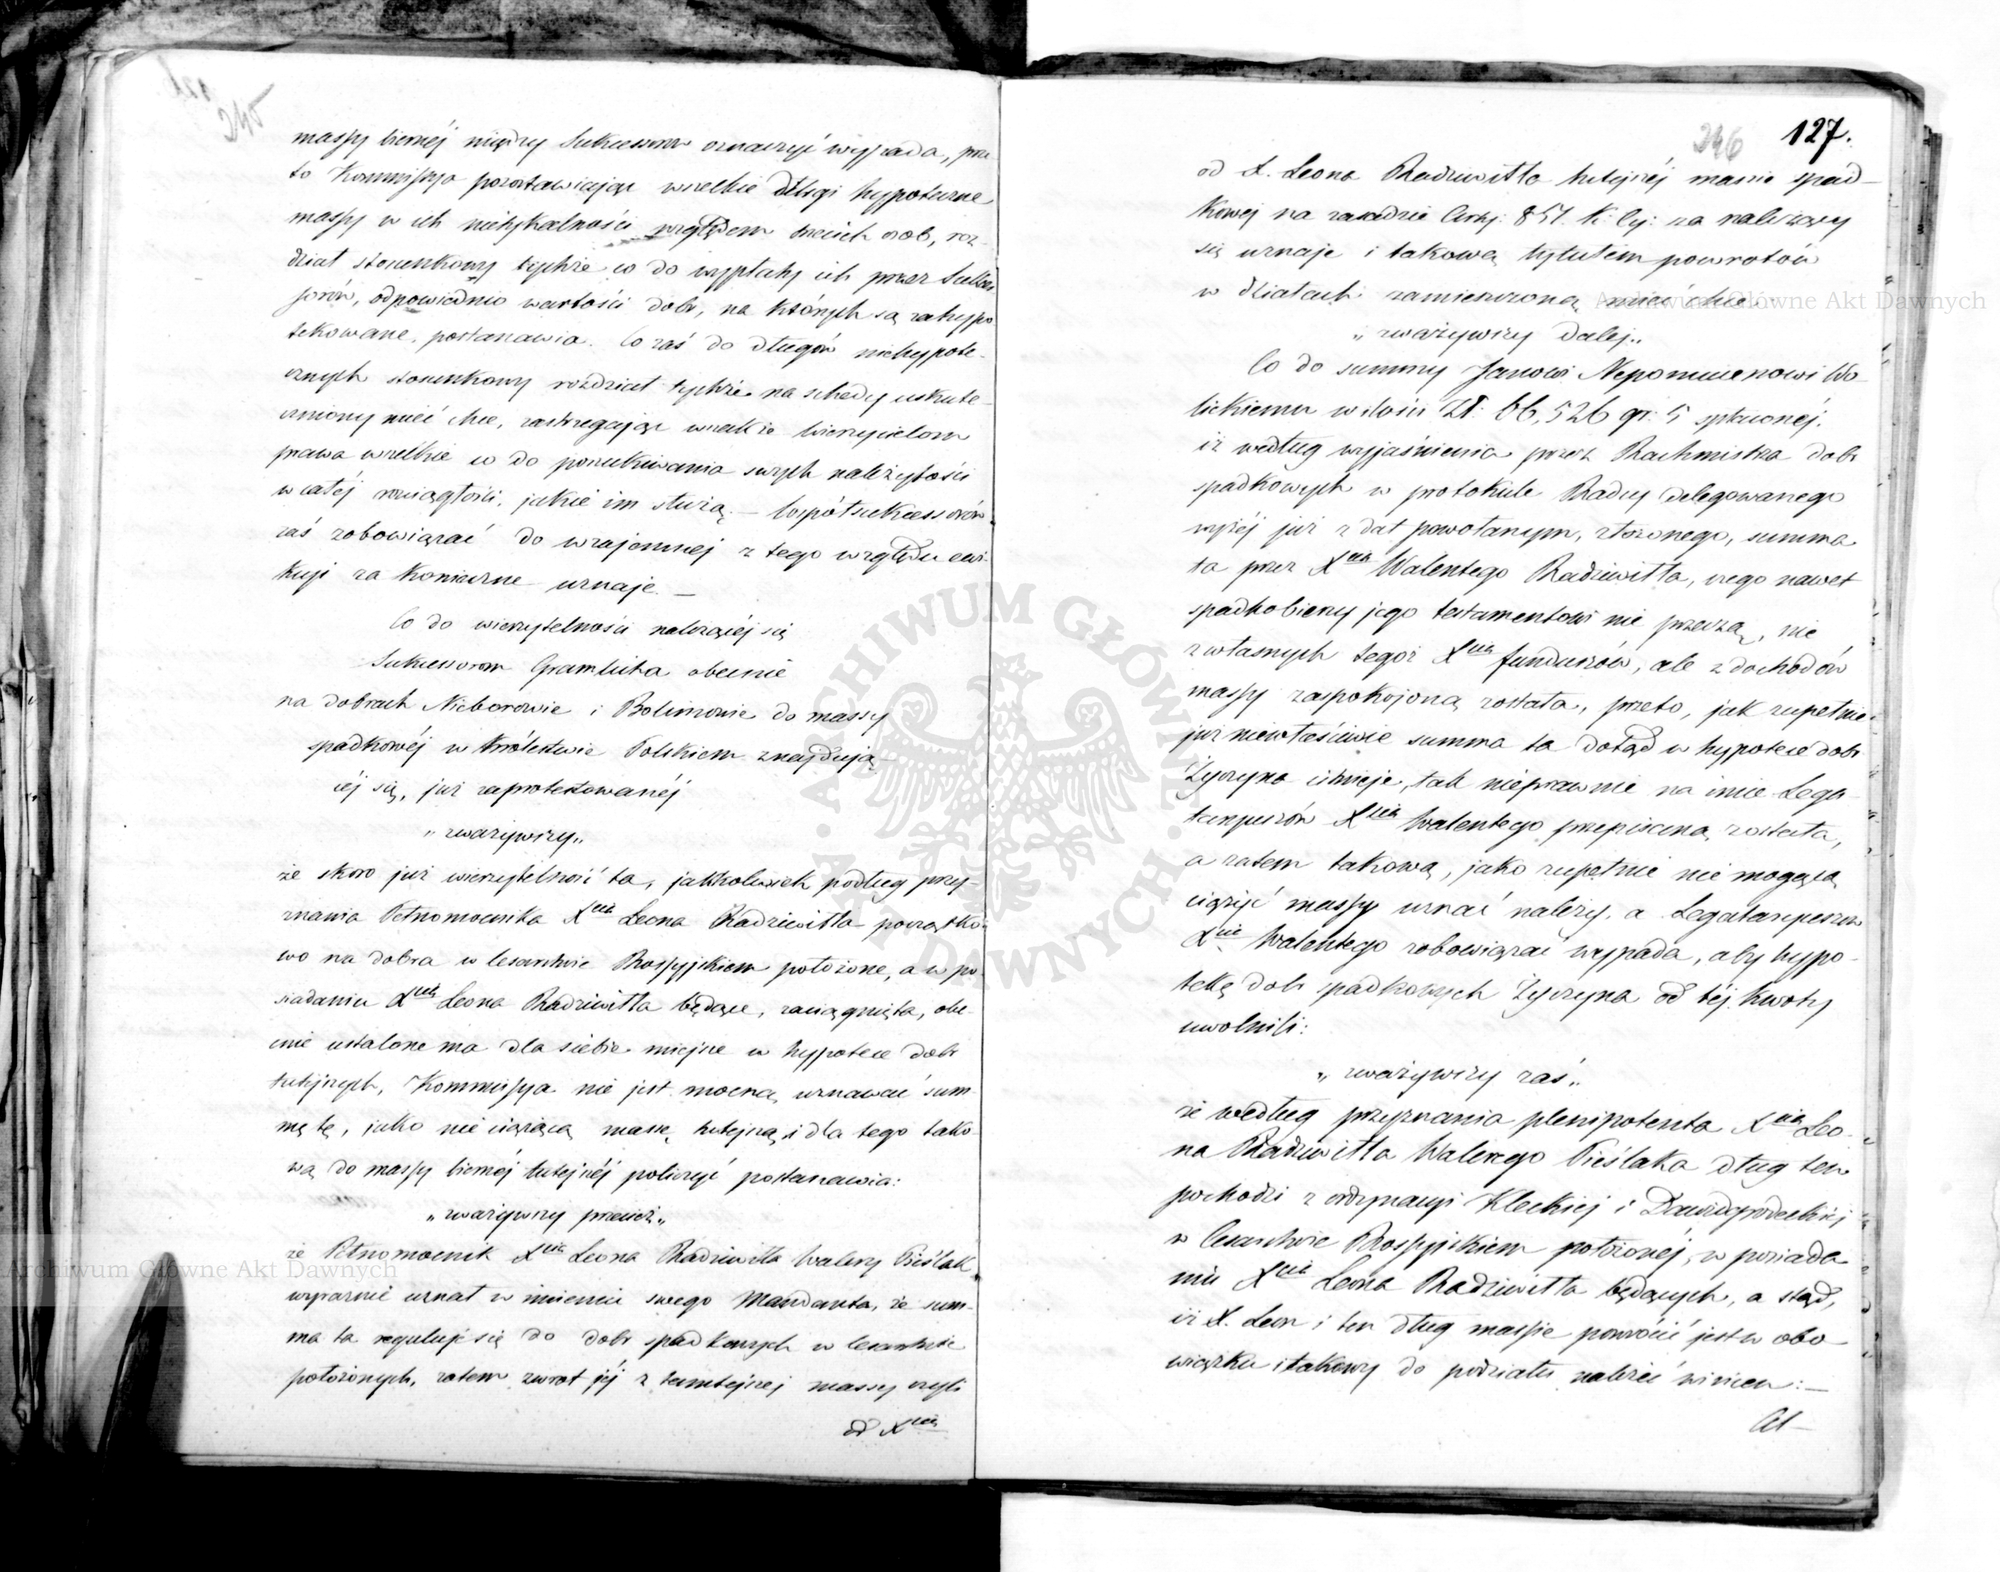 245
massy biernéj między Sukcessorów oznaczyć wypada, prze-
to Kommissya pozostawiając wszelkie długi hypoteczne
massy w ich nietykalności względem trzecich osób, roz-
dział stosunkowy tychże co do wypłaty ich przez Sukces-
sorów, odpowiednio wartości dóbr, na których są zahypo-
tekowane, postanawia. Co zaś do długów niehypote-
cznych stosunkowy rozdział tychże na schedy uskute-
czniony mieć chce, zastrzegając wszakże wierzycielom
prawa wszelkie co do poszukiwania swych należytości
w całéj rozciągłości, jakie im służą. — Współsukcessorów
zaś zobowiązać do wzajemnej z tego względu ewi-
kcyi za konieczne uznaje. —
Co do wierzytelności należącéj się
Sukcessorom Gramlicha obecnie
na dobrach Nieborowie i Bolimowie do massy
spadkowéj w Królestwie Polskiem znajdują-
céj się, już zaprotestowanéj
„zważywszy„
że skoro już wierzytelność ta, jakkolwiek podług przy-
znania Pełnomocnika Xcia Leona Radziwiłła początko-
wo na dobra w Cesarstwie Rossyjskiem położone, a w po-
siadaniu Xcia Leona Radziwiłła będące, zaciągnięta, obe-
cnie ustalone ma dla siebie miejsce w hypotece dóbr
tutejszych, Kommissya nie jest mocną uznawać sum-
mę tę, jako nie ciążącą massę tutejszą i dla tego tako-
wą do massy biernéj tutejszéj policzyć postanawia:
„zważywszy przecież„
że Pełnomocnik Xcia Leona Radziwiłła Walery Pieślak
wyraźnie uznał w imieniu swego Mandanta, że sum-
ma ta reguluje się do dóbr spadkowych w Cesarstwie
położonych, zatem zwrot jéj z tamtejszej massy czyli
od Xcia
246 127.
od X. Leona Radziwiłła tutejszéj massie spad-
kowej na zasadzie Arty: 851. K. Cy: za należący
się uznaje i takową tytułem powrotów
w działach zamieszczoną mieć chce.
„zważywszy dalej„
Co do summy Janowi Nepomucenowi Wo-
lickiemu w ilości Zł: 66,526 gr: 5 spłaconéj.
iż według wyjaśnienia przez Rachmistrza dóbr
spadkowych w protokule Radcy delegowanego
wyżéj już z dat powołanym, złożonego, summa
ta przez Xcia Walentego Radziwiłła, czego nawet
spadkobiercy jego testamentowi nie przeczą, nie
z własnych tegoż Xcia funduszów, ale z dochodów
massy zaspokojoną została, przeto, jak zupełnie
już niewłaściwie summa ta dotąd w hypotece dóbr
Życzyna istnieje, tak nieprawnie na imie Lega-
taryuszów Xcia Walentego przepisaną została,
a zatem takową, jako zupełnie nie mogącą
ciążyć massy uznać należy, a Legataryuszów
Xcia Walentego zobowiązać wypada, aby hypo-
tekę dóbr spadkowych Życzyna od téj kwoty
uwolnili:
„zważywszy zaś„
że według przyznania plenipotenta Xcia Leo-
na Radziwiłła Walerego Pieślaka dług ten
pochodzi z ordynacyi Kleckiej i Dawidgrodeckiéj
w Cesarstwie Rossyjskiem położonéj, w posiada-
niu Xcia Leona Radziwiłła będących, a stąd,
iż X. Leon i ten dług massie powrócić jest w obo-
wiązku i takowy do podziału należeć winien: —